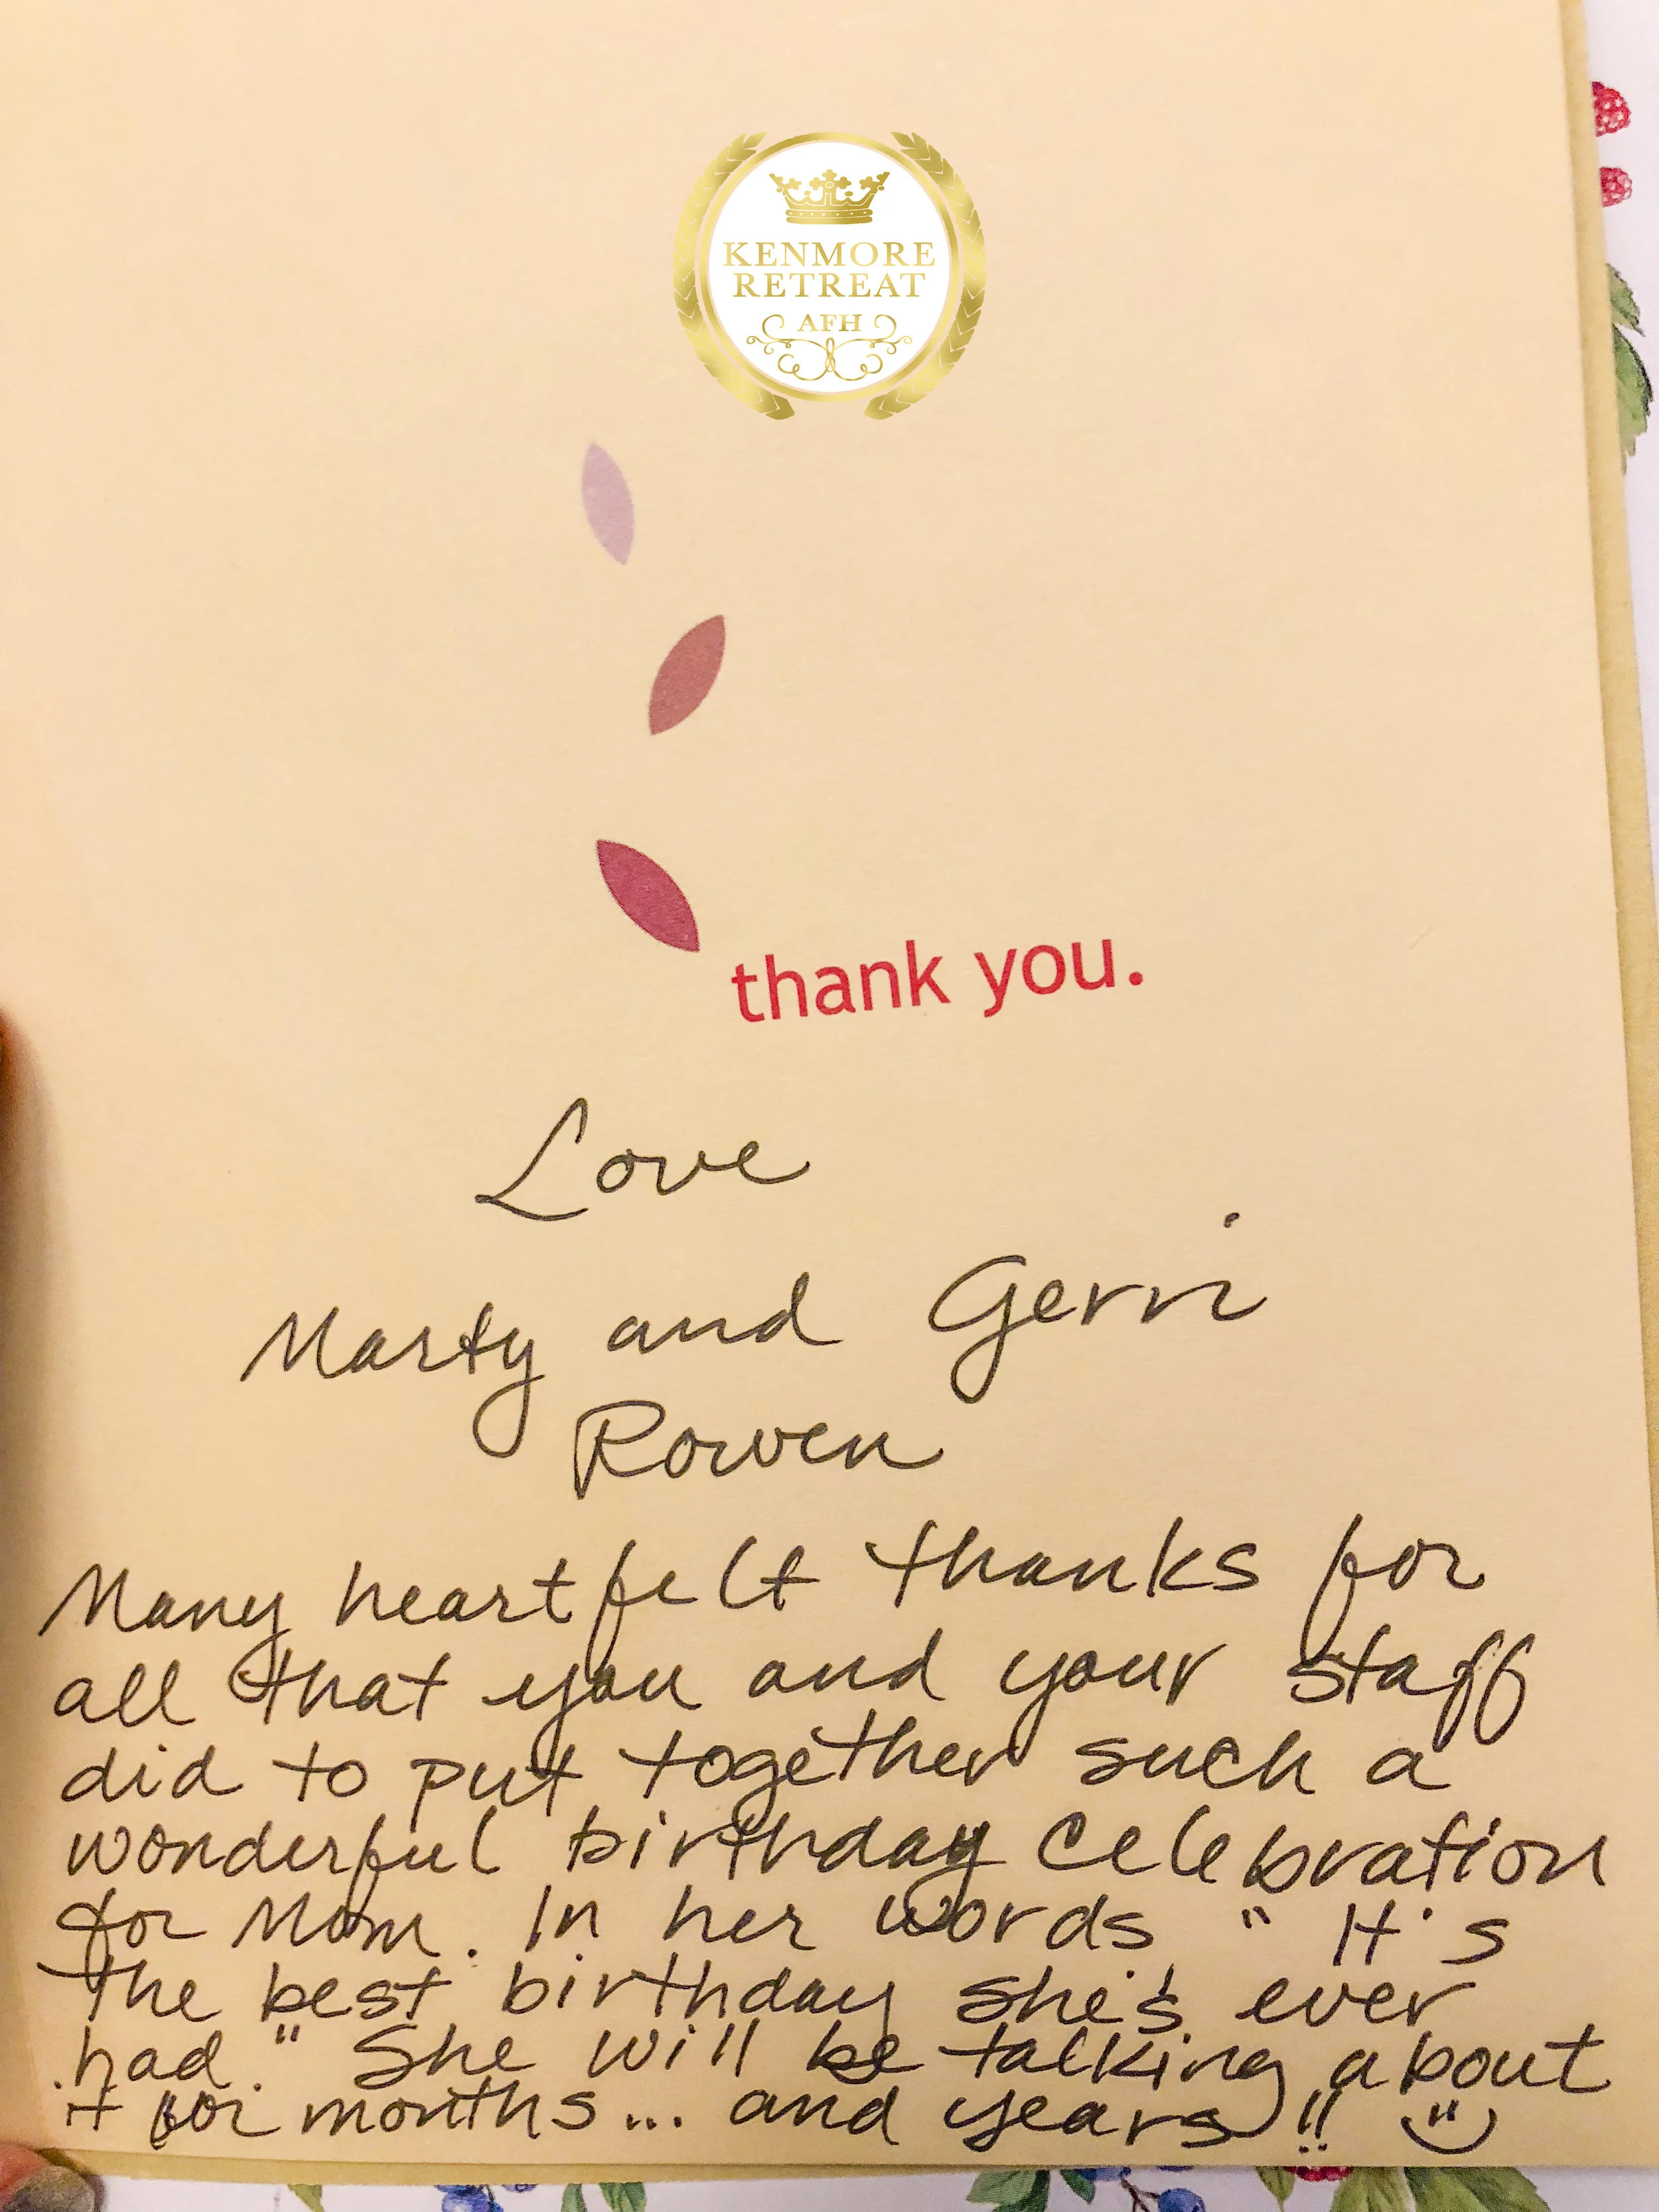 KENMORE
RETREAT
AFH
thank you.
Love
Marty and Gerri
Rowen
Many heartfelt thanks for
all that you and your staff
did to put together such a
wonderful birthday celebration
for Mom. In her words "It's
the best birthday she's ever
had." She will be talking about
it for months... and years!!